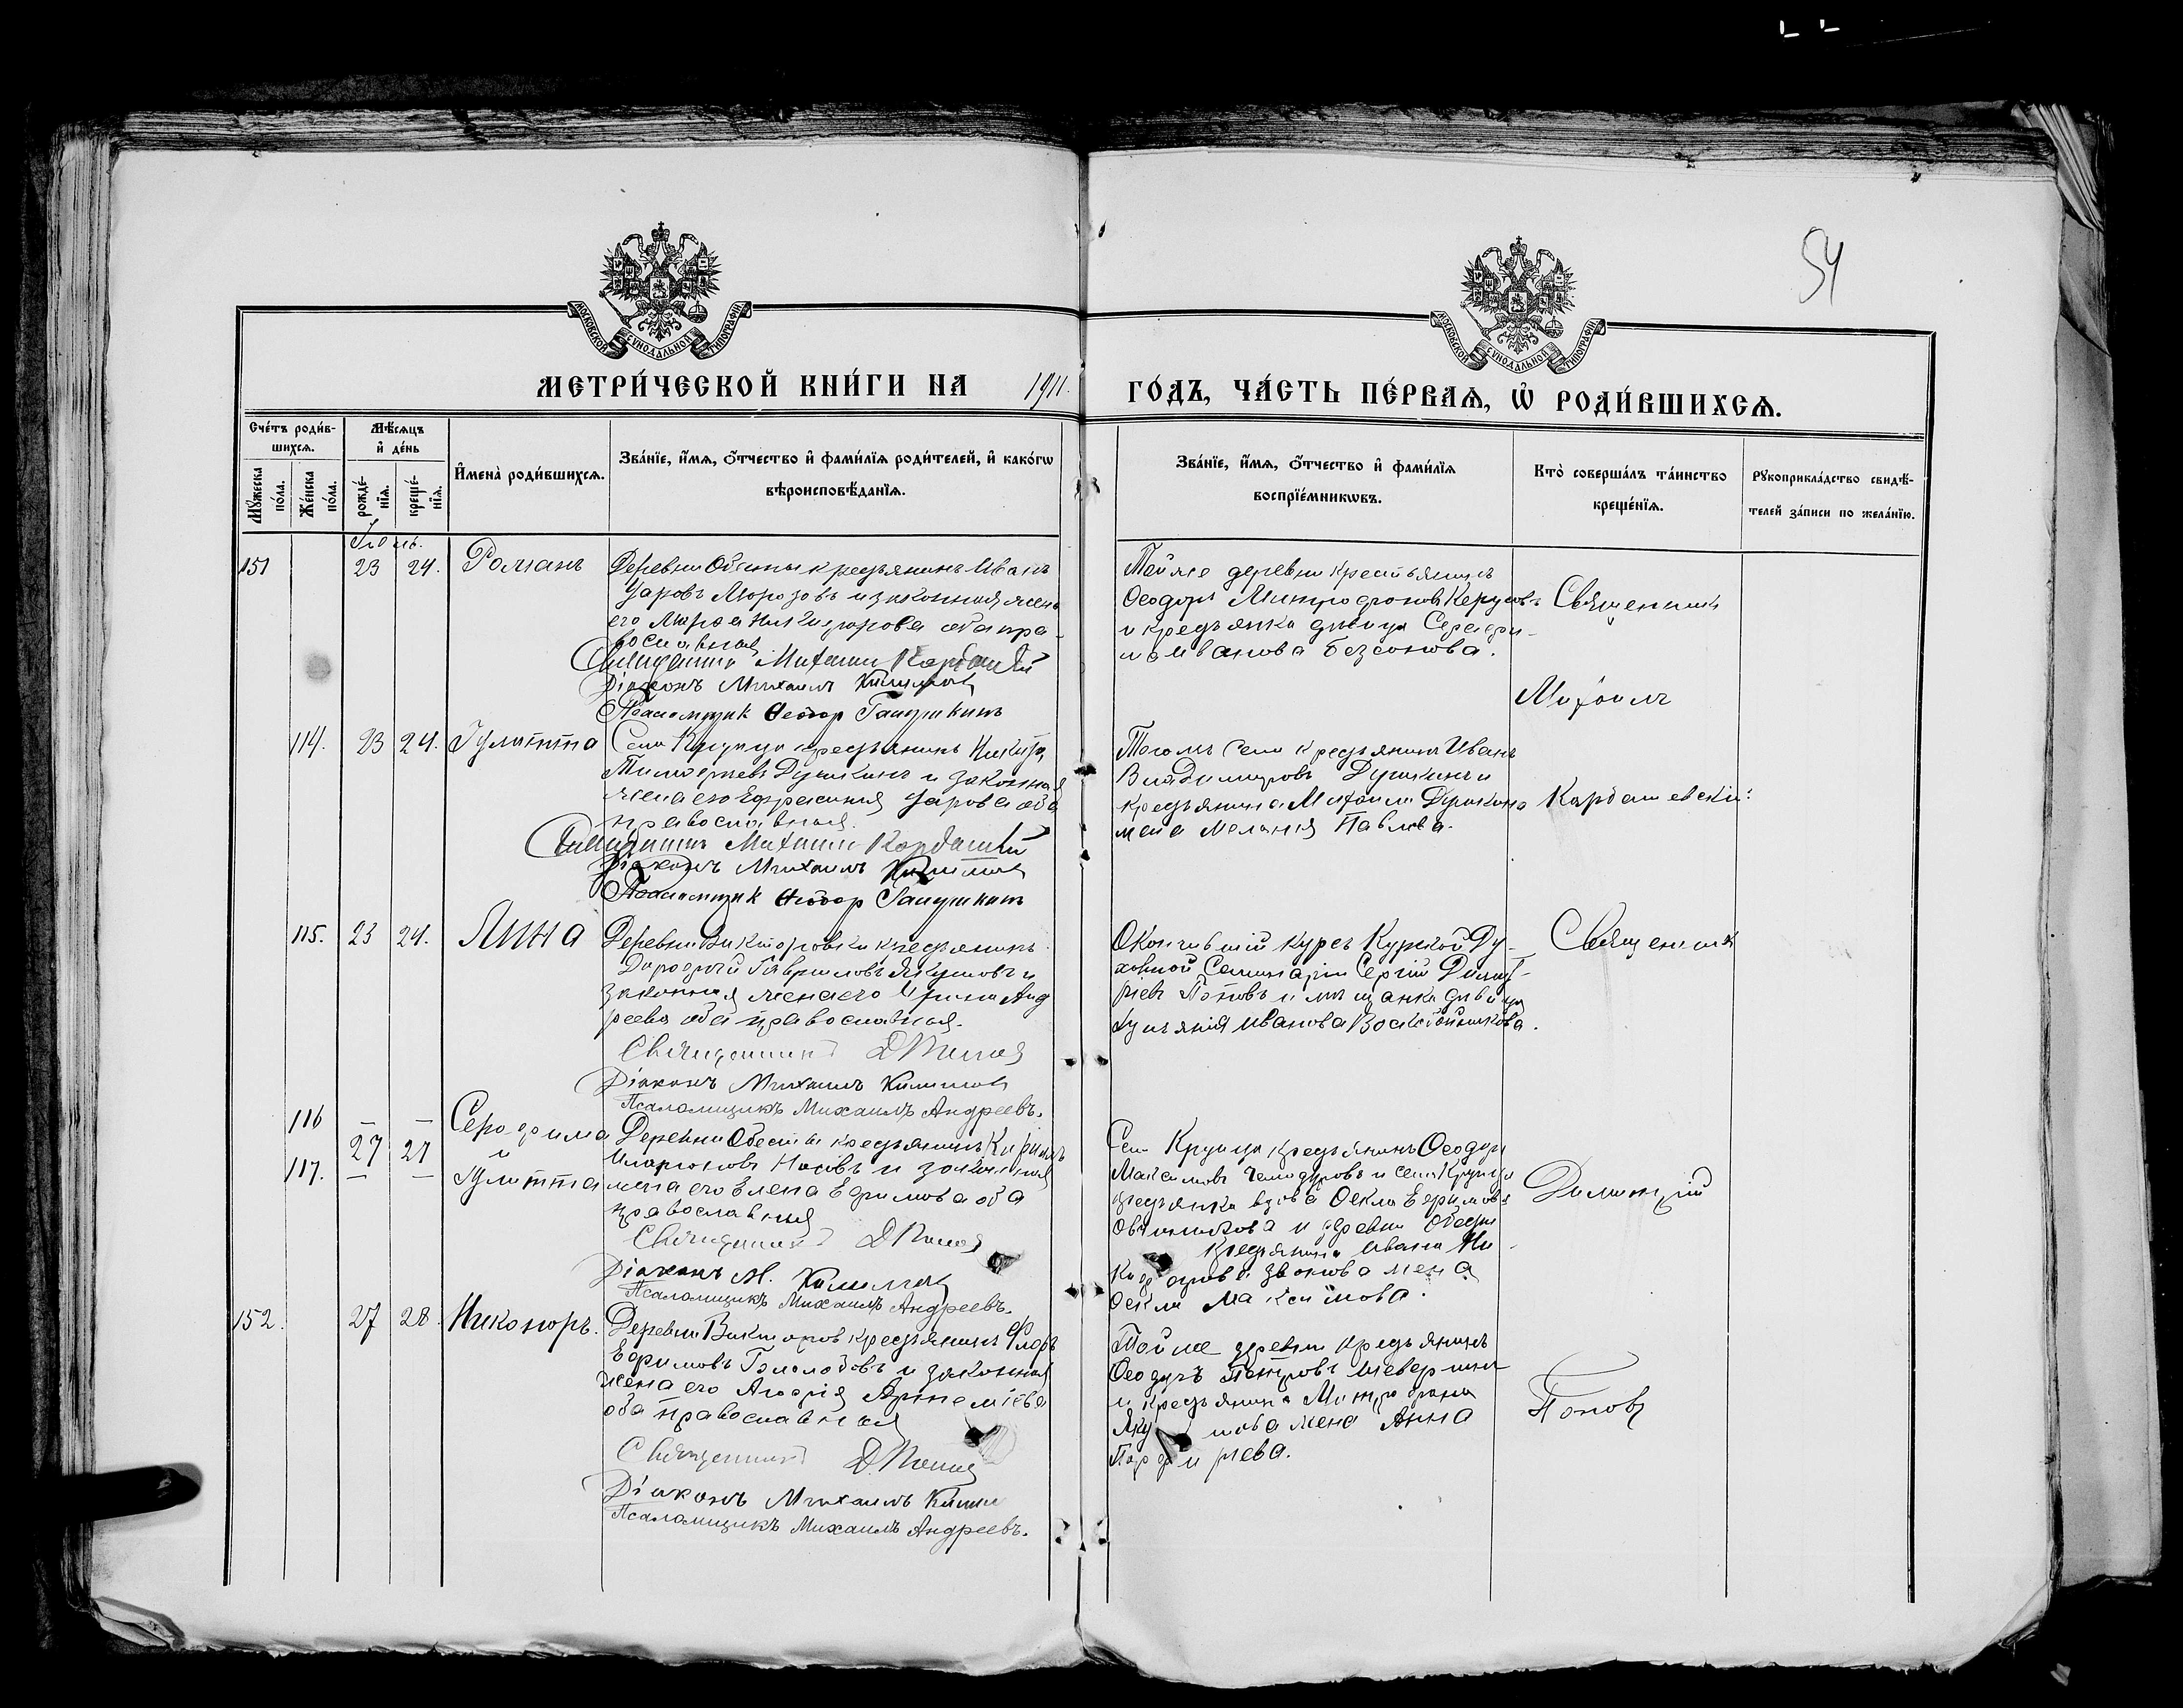 54
МОСКОВСКОЙ СУНОДАЛЬНОЙ ТИПОГРАФІИ
МОСКОВСКОЙ СУНОДАЛЬНОЙ ТИПОГРАФІИ
МЕТРИ́ЧЕСКОЙ КНИ́ГИ НА 1911. ГО́ДЪ, ЧА́СТЬ ПЕ́РВАѦ, Ѡ҆ РОДИ́ВШИХСѦ.
Сче́тъ роди́в-
шихсѧ.
Мꙋ́жеска по́ла.
Же́нска по́ла.
Мѣ́сѧцъ
и҆ де́нь
рожде́-
нїѧ.
креще́-
нїѧ.
И҆мена̀ роди́вшихсѧ.
Зва́нїе, и҆́мѧ, ѻ҆́тчество и҆ фами́лїѧ роди́телей, и҆ како́гѡ
вѣроисповѣ́данїѧ.
Зва́нїе, и҆́мѧ, ѻ҆́тчество и҆ фами́лїѧ
воспрїе́мникѡвъ.
Кто̀ соверша́лъ та́инство
креще́нїѧ.
Рꙋкоприкла́дство свидѣ́-
телей за́писи по жела́нїю.
151
23 24. Романъ
Деревни крестьянинъ Иванъ
Уаровъ Морозовъ и законная жена
его Никифорова оба пра-
вославныя
Священникъ Михаилъ
Діаконъ Михаилъ
Псаломщик Ѳеодор
Той же деревни крестьянинъ
Ѳеодоръ Митрофановъ
и крестьянка дѣвица Серафи-
ма Иванова Безсонова.
Священникъ
Михаилъ
114. 23 24. Іулитта
Села Крупца крестьянинъ Никита
Тимофеевъ Душкинъ и законная
жена его Ефросинія Уарова оба
православныя.
Священникъ Михаилъ
Діаконъ Михаилъ
Псаломщик Ѳеодор
Тогожъ села крестьянинъ Иванъ
Владимировъ Душкинъ и
крестьянина Михаила Душкина
жена Меланія Павлова.
Кардашевскій
115. 23 24. Анна
Деревни Викторовки крестьянинъ
Дорофей Гавриловъ Якушовъ и
законная жена его Ирина Анд
реева оба православныя.
Священникъ Д Попов
Діаконъ Михаилъ
Псаломщикъ Михаилъ Андреевъ.
Окончившій курсъ Курской Ду-
ховной Семинаріи Сергій Димит-
ріев Поповъ и мѣщанка дѣвица
Иванова
Священникъ
116 — —
117. 27 27
— —
Серафима
и
Іулитта
Деревни крестьянинъ Кириллъ
Иларіоновъ Носовъ и законная
жена его Елена Ефимова оба
православныя
Священникъ Д Попов
Діаконъ М.
Псаломщикъ Михаилъ Андреевъ.
Села Крупца крестьянинъ Ѳеодоръ
Максимовъ Чемодуровъ и села Крупца
крестьянка вдова Ѳекла Ефимова
и деревни
крестьянина Ивана Ни
жена
Ѳекла Максимова.
Димитрій
152. 27 28. Никаноръ.
Деревни Викторов крестьянинъ Флоръ
Ефимовъ Гололобовъ и законная
жена его Агафія Артеміева
оба православныя
Священникъ Д. Попов
Діаконъ Михаилъ
Псаломщикъ Михаилъ Андреевъ.
Той же деревни крестьянинъ
Петровъ
и крестьянина Митрофана
жена Анна
Порфирiева.
Поповъ